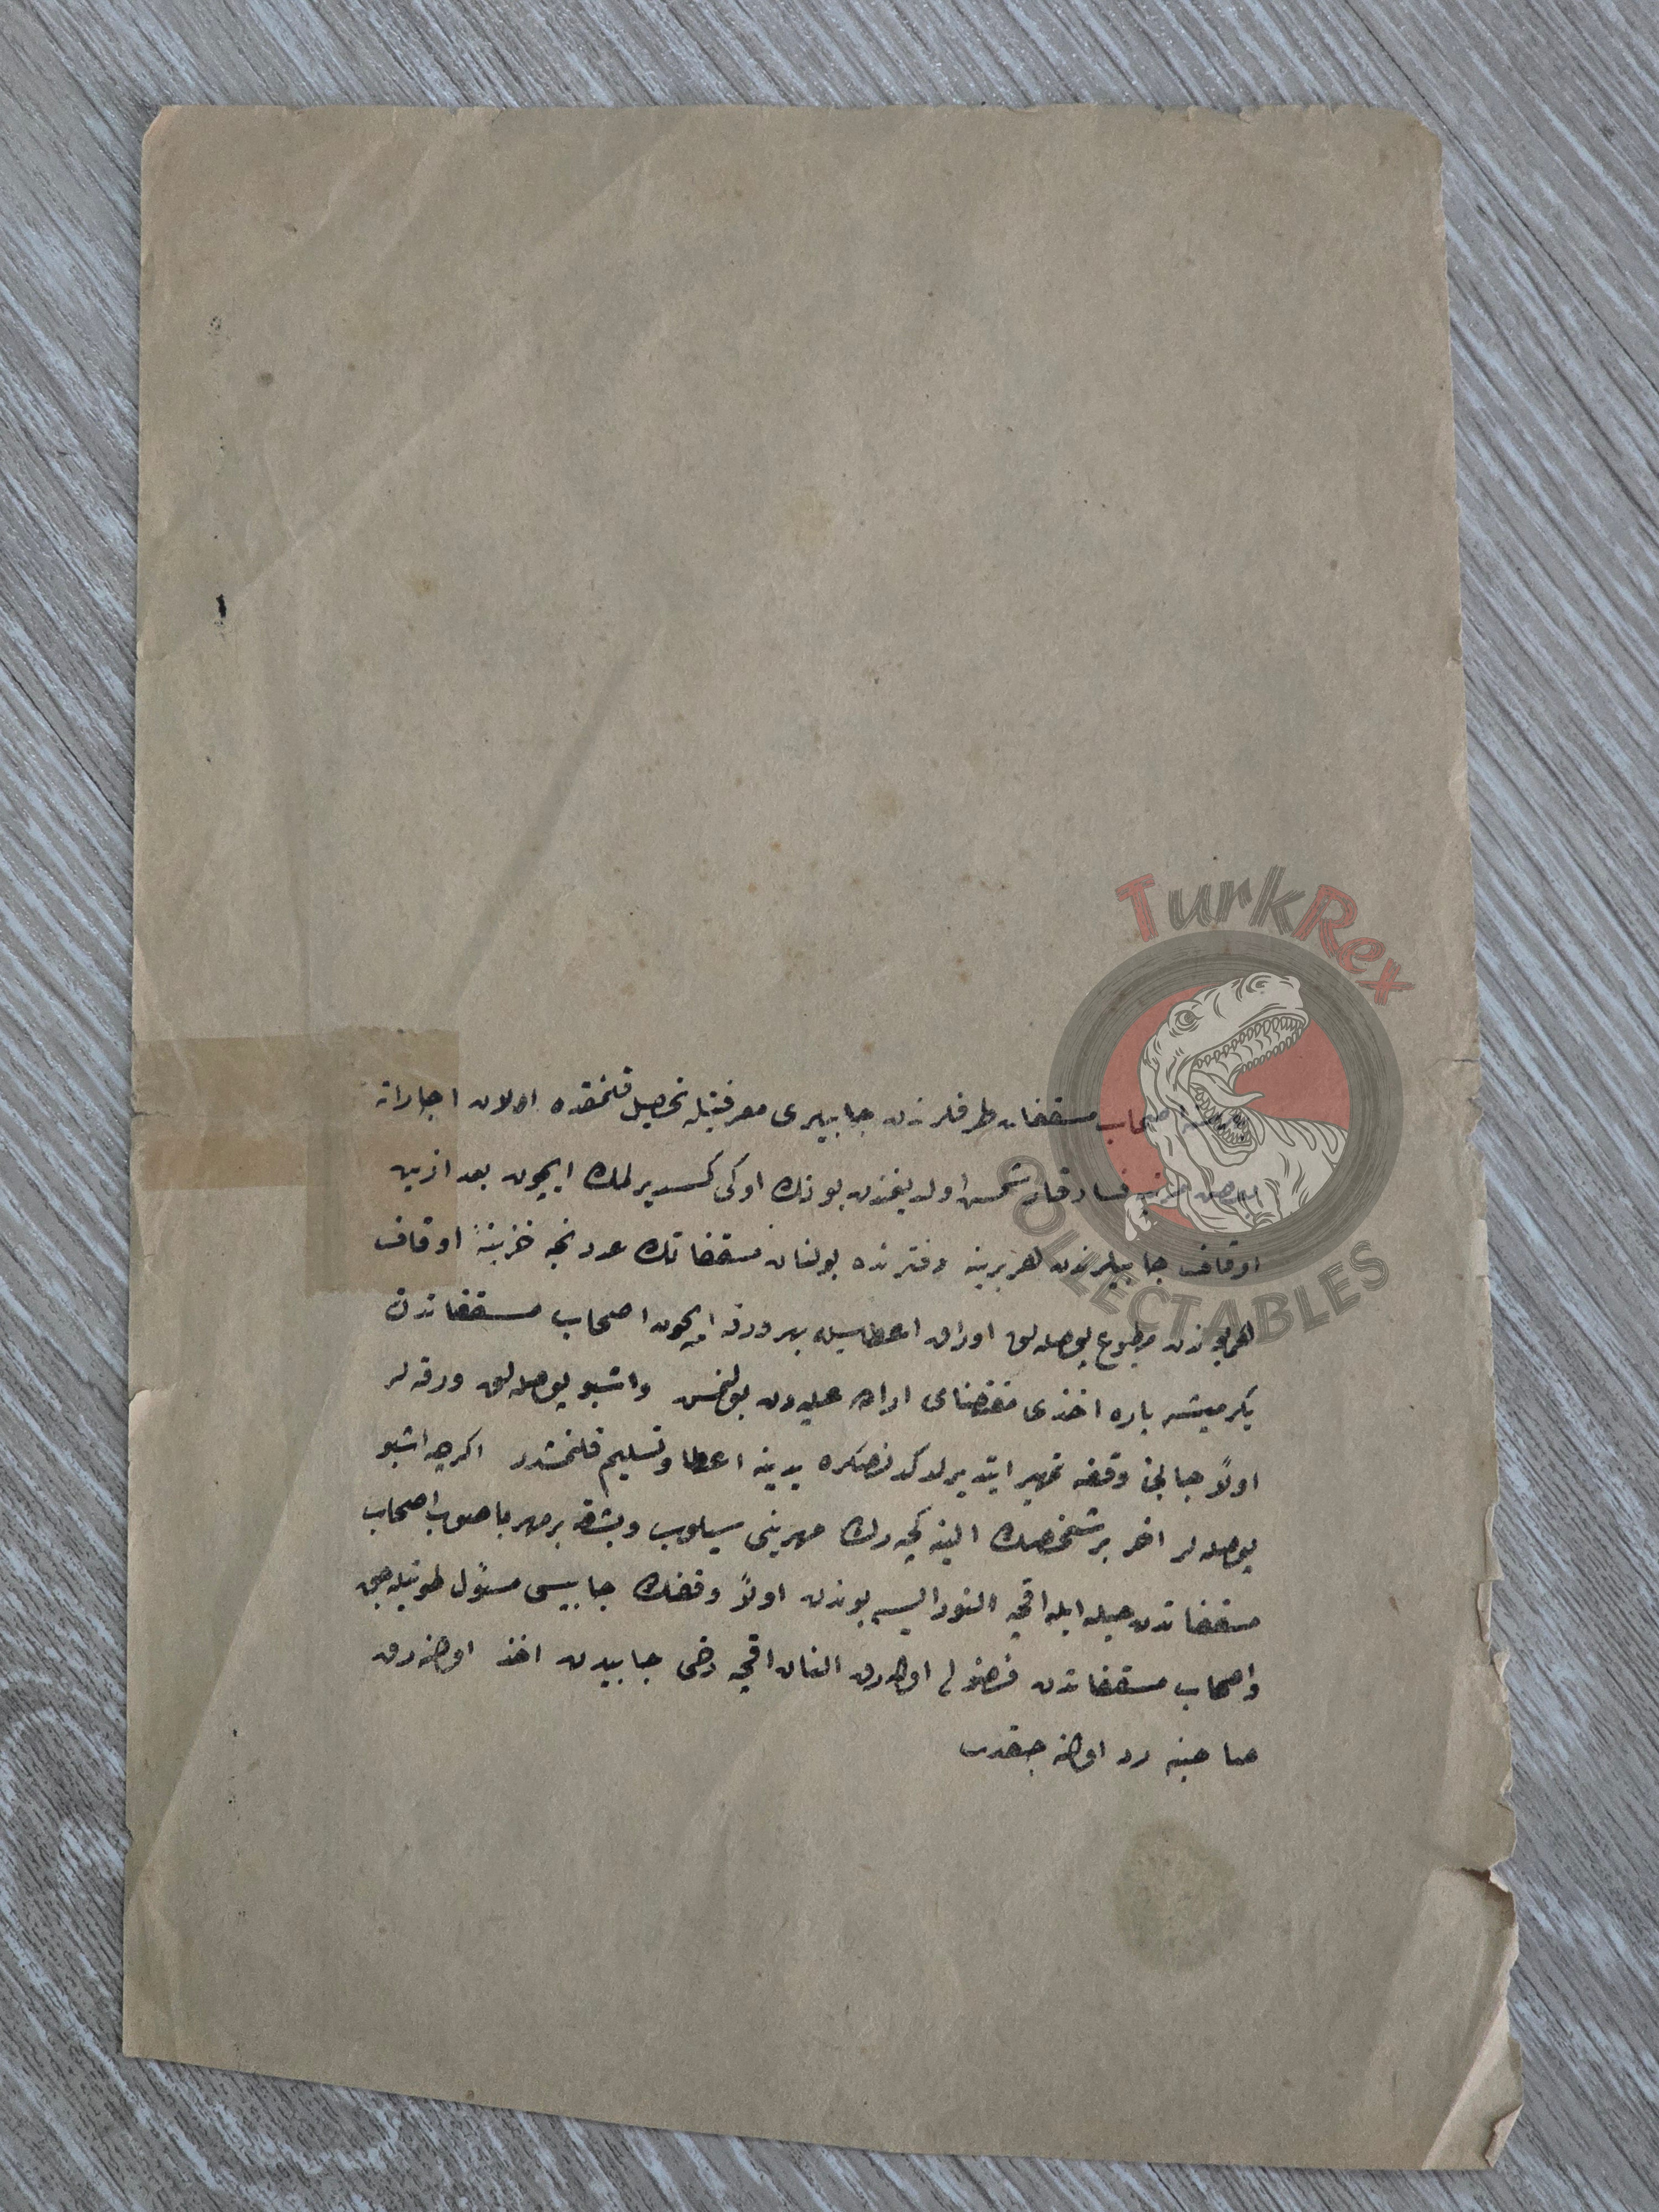 TurkRex
COLLECTABLES
اصحاب مسقفات طرفلرندن جابيلرى معرفتيله تحصيل قلنمقده اولان اجاراته
فساد قارشمش اولديغندن بونك اوكى كسديرلمك ايچون بعد ازين
اوقاف جابيلرندن هر برينه دفترنده بولنان مسقفاتك عددنجه خزينۀ اوقاف
همايوندن مطبوع پوصله لق اوراق اعطاسيله بهر ورقه ايچون اصحاب مسقفاتدن
يكرميشر پاره اخذى مقتضاى اراده عليه دن بولنمش واشبو پوصله لق ورقه لر
اولاً جابئ وقفه تمهير ايتديرلدكدنصكره يدينه اعطا وتسليم قلنمشدر اكرچه اشبو
پوصله لر اخر بر شخصك الينه كچه رك مهرينى سيلوب وبشقه بر مهر باصوب اصحاب
مسقفاتدن حيله ايله اقچه النور ايسه بوندن اولاً وقفك جابيسى مسئول طوتيله جق
واصحاب مسقفاتدن فضولى اوله رق النان اقچه دخى جابيدن اخذ اولنه رق
صاحبنه رد اولنه جقدر